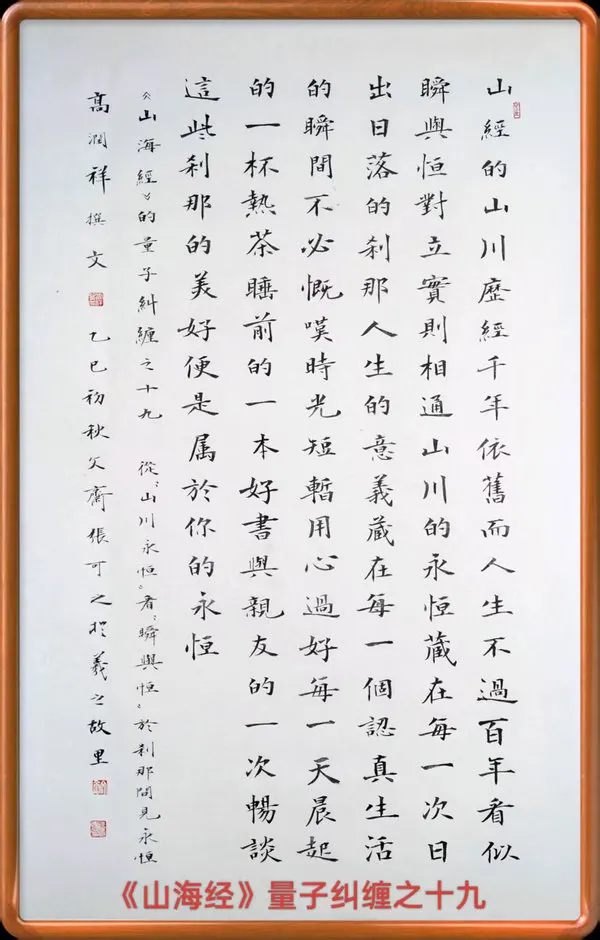 山經的山川歷經千年依舊而人生不過百年看似
瞬與恒對立實則相通山川的永恒藏在每一次日
出日落的刹那人生的意義藏在每一個認真生活
的瞬間不必慨嘆時光短暫用心過好每一天晨起
的一杯熱茶睡前的一本好書與親友的一次暢談
這些刹那的美好便是属於你的永恒
《山海經》的量子糾纏之十九 從“山川永恒”看“瞬與恒”於刹那間見永恒
高潤祥撰文 乙巳初秋齋張可之於羲之故里
《山海经》量子纠缠之十九